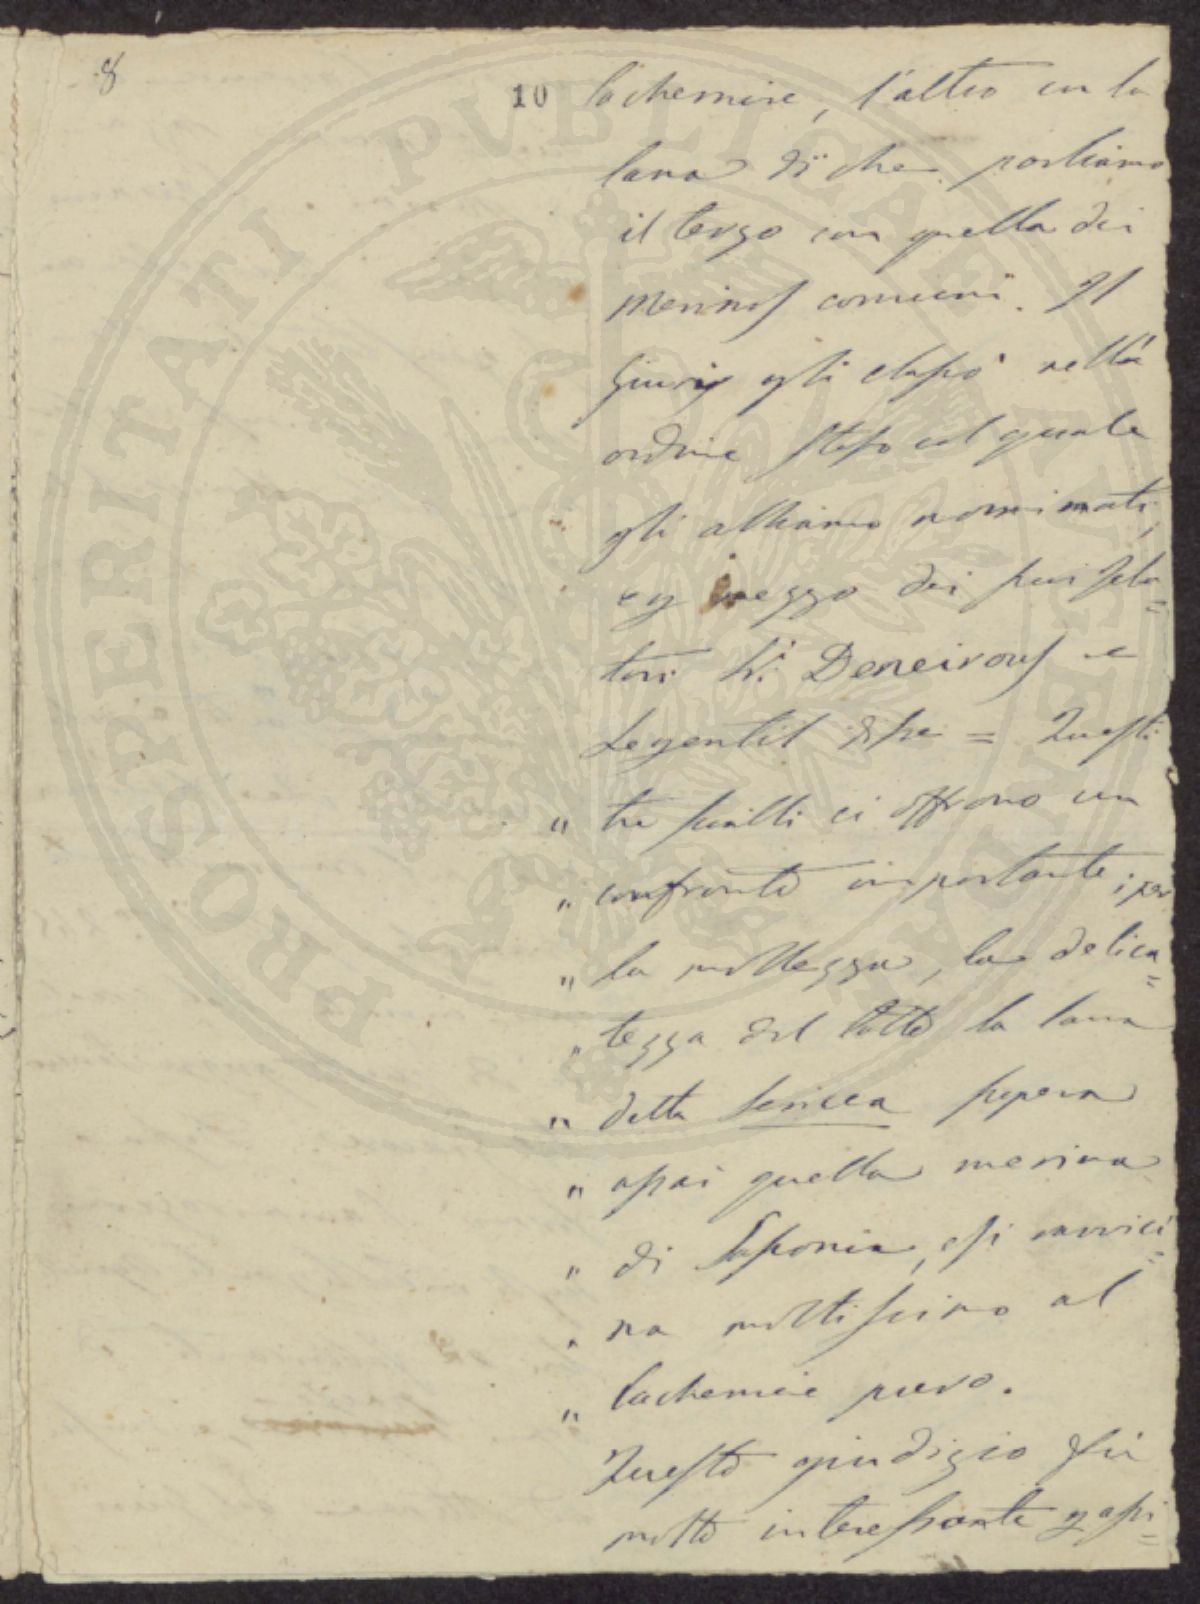 8
10 Cachemire, l'altro con la
lana di che parliamo
il terzo con quella dei
Merinos comuni. Il
Giurì gli classò nell'
ordine stesso col quale
gli abbiamo nominati,
e mezzo dei suoi
tori Sri Deneirous e
Legentil disse = Questi
" tre scialli ci offrono un
" confronto importante; per
" la mollezza, la delica=
" tezza del tatto la lana
" detta Sericea supera
" assai quella merina
" di Sassonia, e si avvici=
" na moltissimo al
" Cachemire puro.
Questo giudizio fu
molto interessante
PROSPERITATI PVBLICAE AVGENDAE